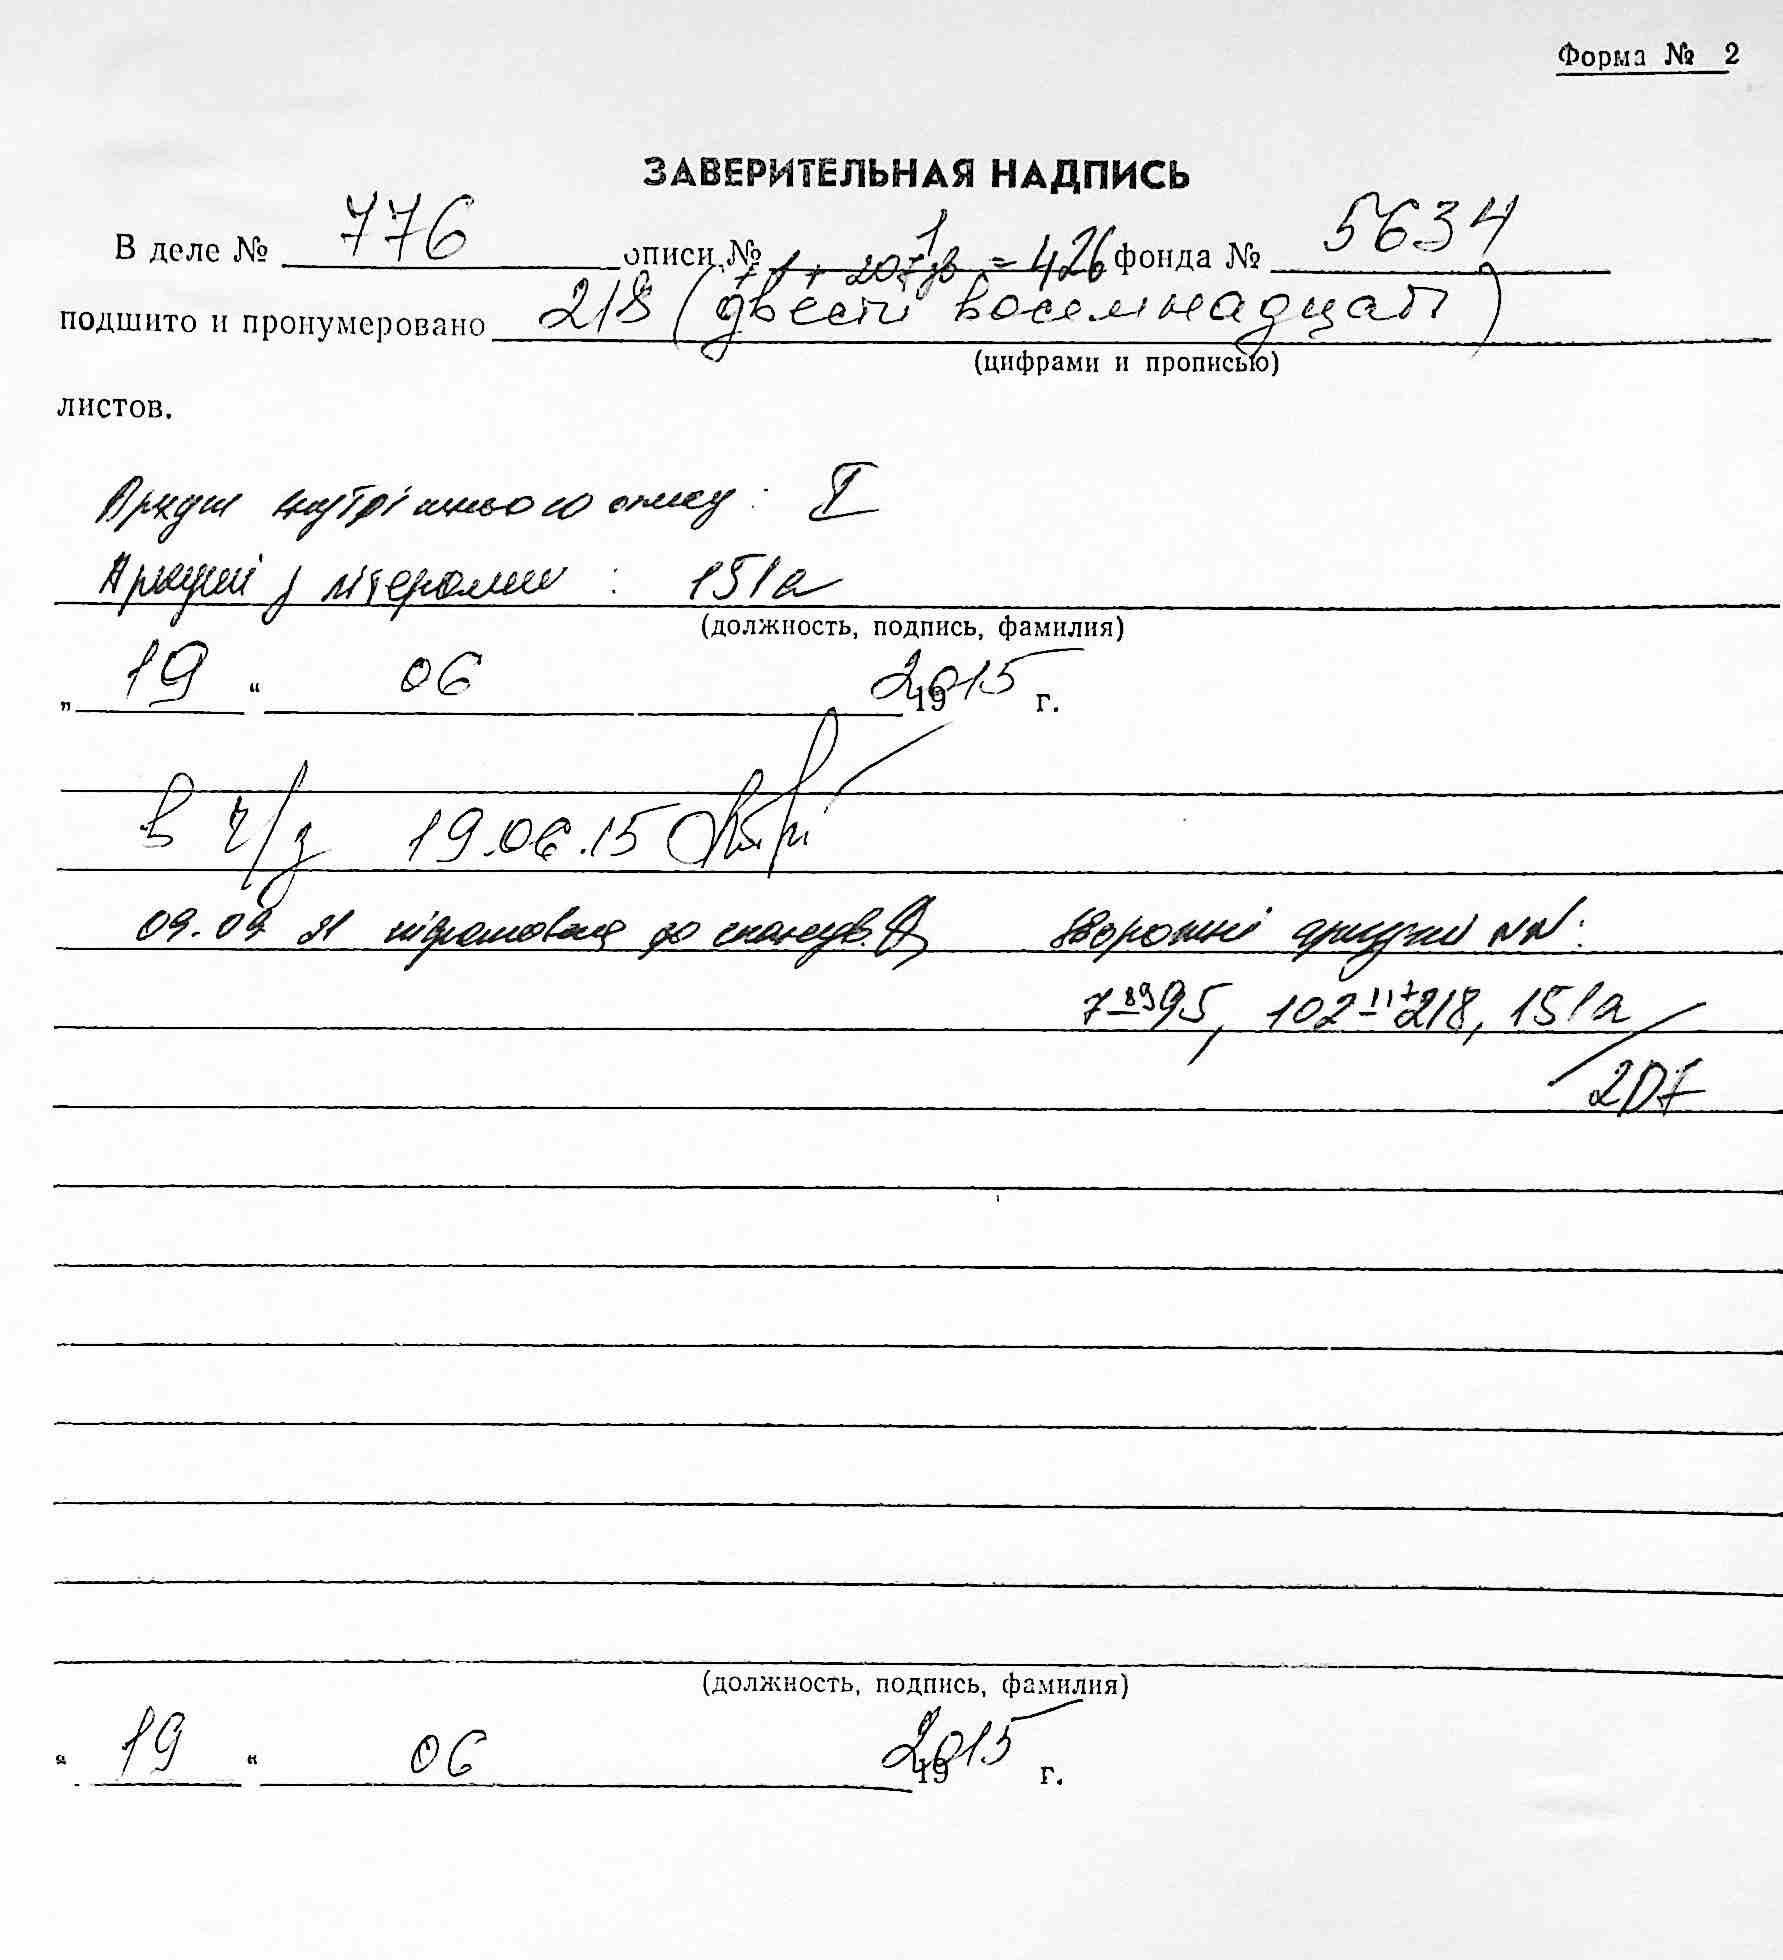 Форма № 2
ЗАВЕРИТЕЛЬНАЯ НАДПИСЬ
В деле № 776 описи № 1 фонда № 5634
+ 1 + 207 зв = 426
подшито и пронумеровано 218 (двести восемнадцать)
(цифрами и прописью)
листов.
Аркуш внутрішнього опису: I
Аркуші з літерами: 151а
(должность, подпись, фамилия)
„ 19 “ 06 192015 г.
в ч/з 19.06.15
09.09 21 підготовка до сканув. Зворотні аркуші NN:
7–8995, 102–117218, 151а
207
(должность, подпись, фамилия)
“ 19 “ 06 192015 г.